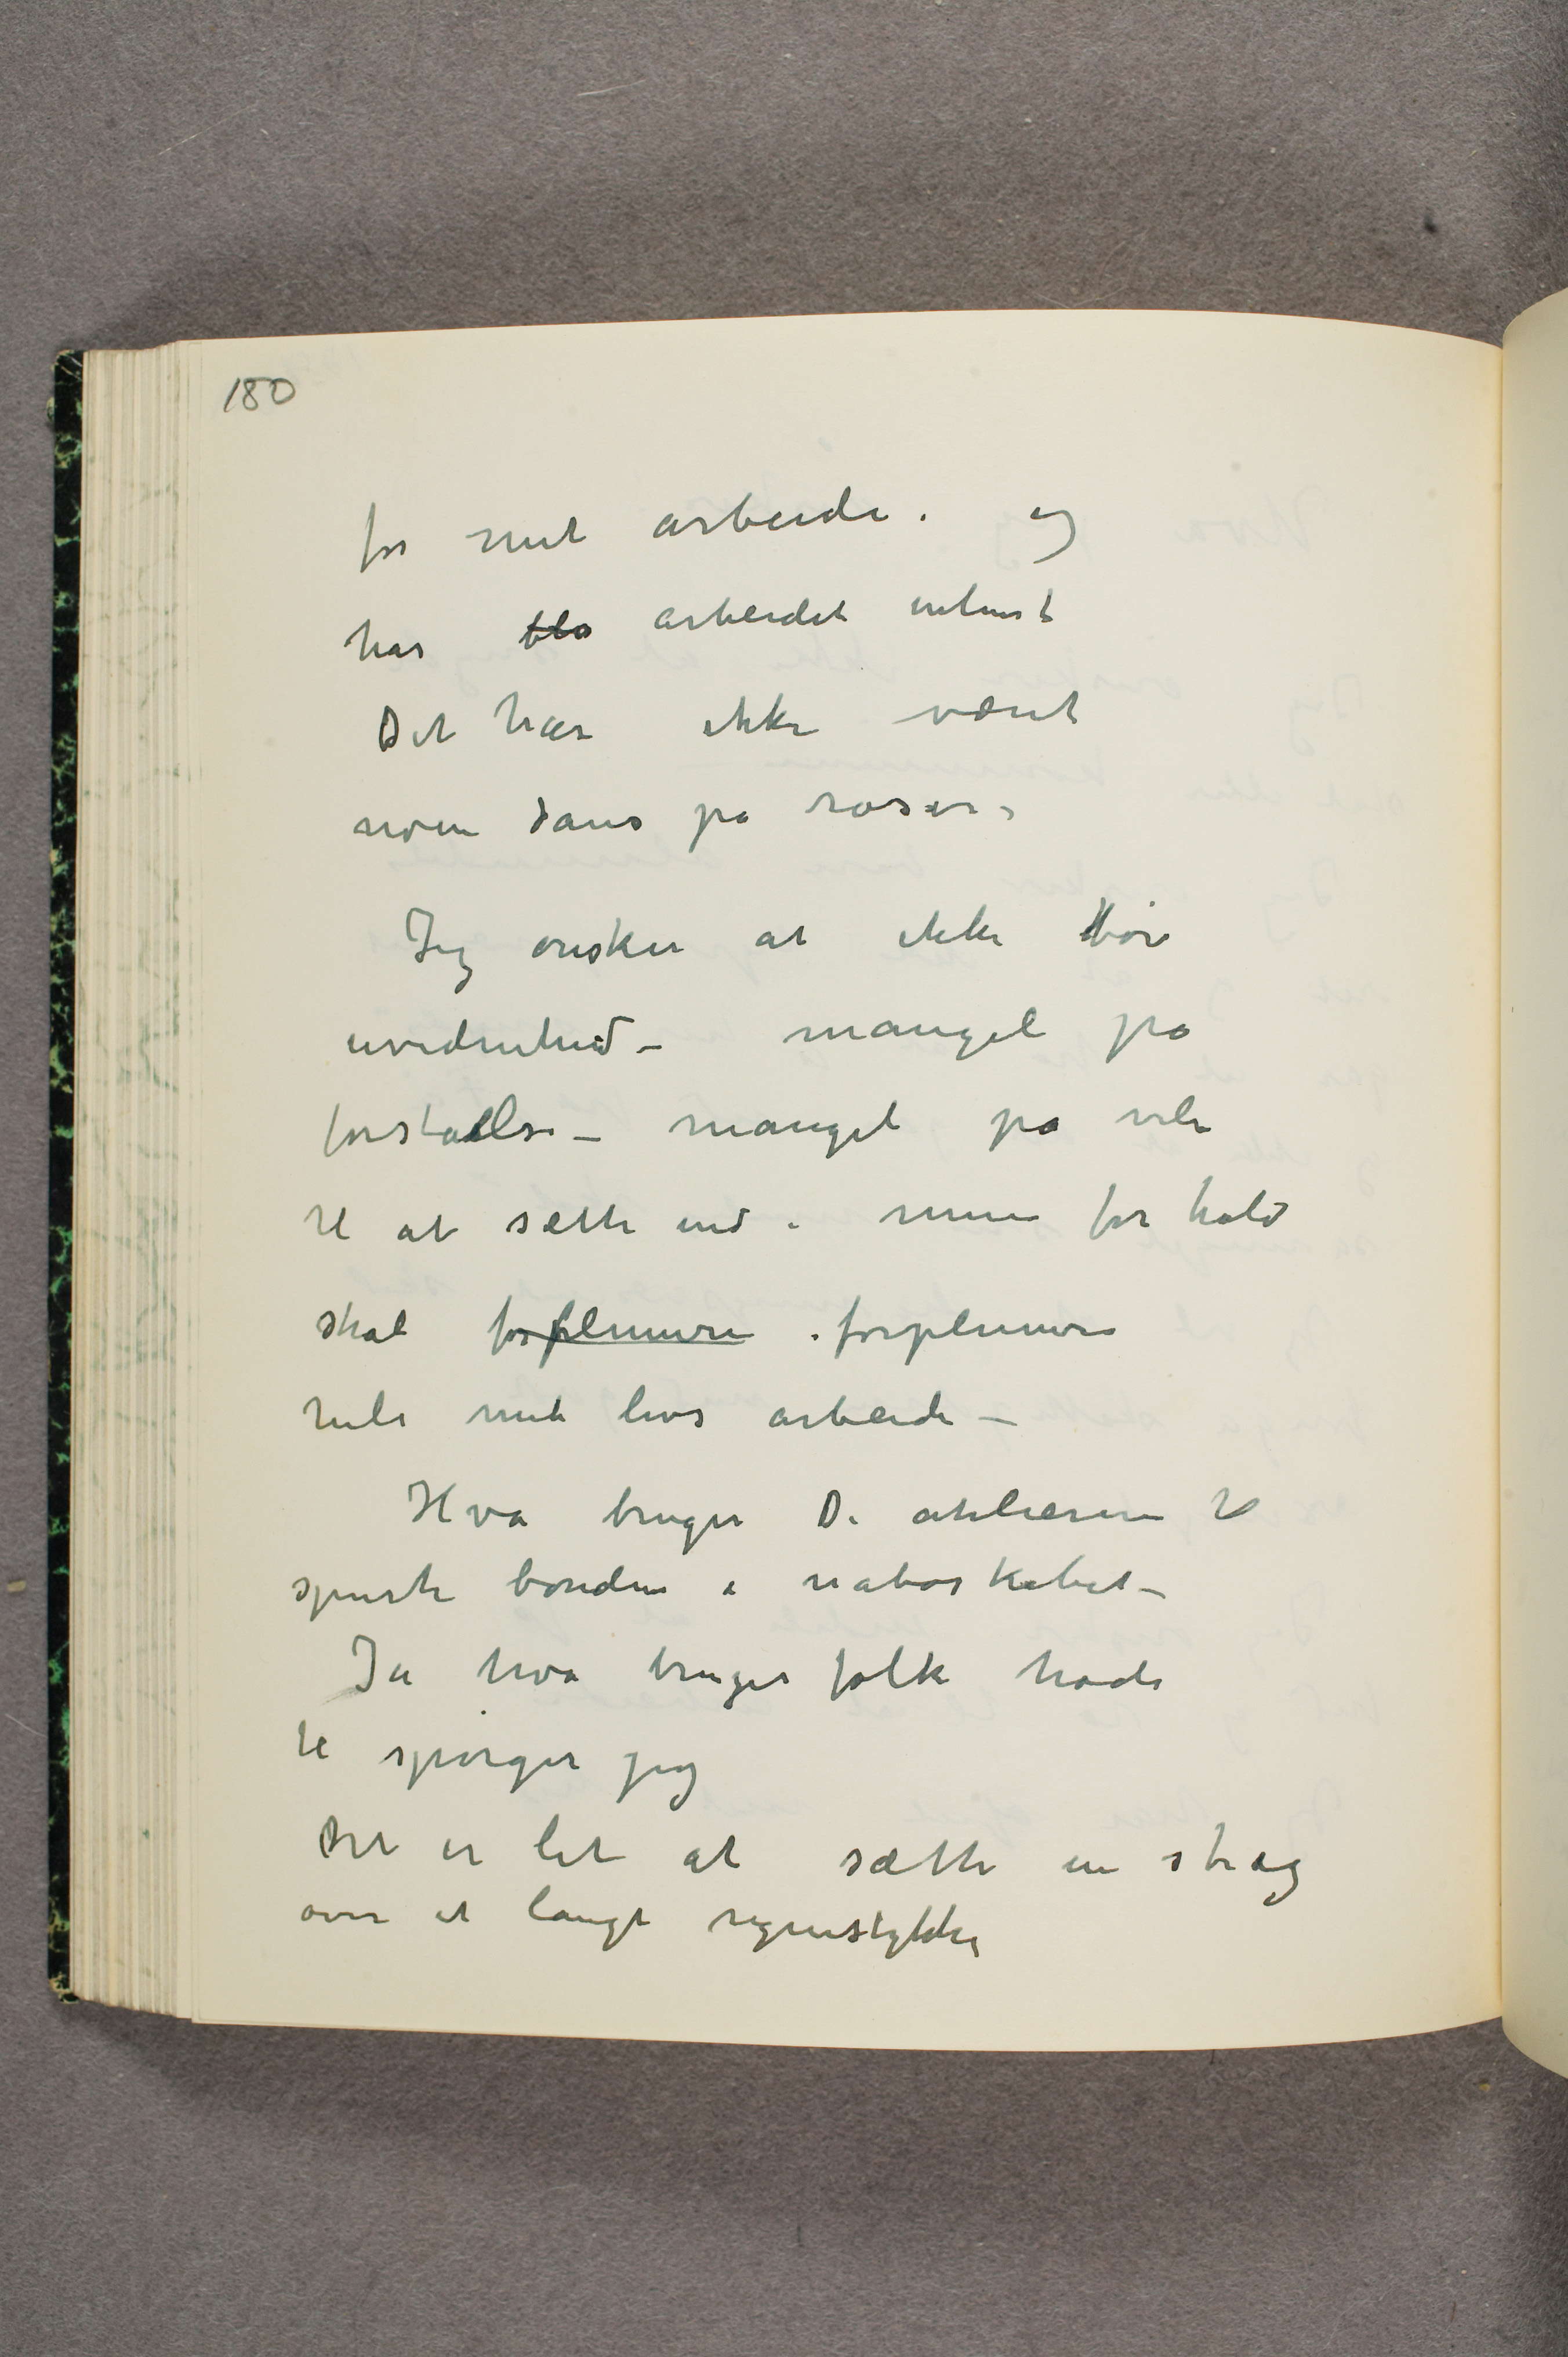 180
for mit arbeide. og
har blo arbeidet intenst
Det har ikke været
noen dans på roser,
Jeg ønsker at ikke bør
uvidenhed – mangel på
forståelse – mangel på vilie
til at sætte ind i mine forhold
skal forplumre forplumre
hele mit livs arbeide –
Hva bruger De atelierene til
spurte bonden i naboskabet –
Ja hva bruger folk hode
til spørger jeg
Det er let at sætte en strøg
over et langt regnestykke